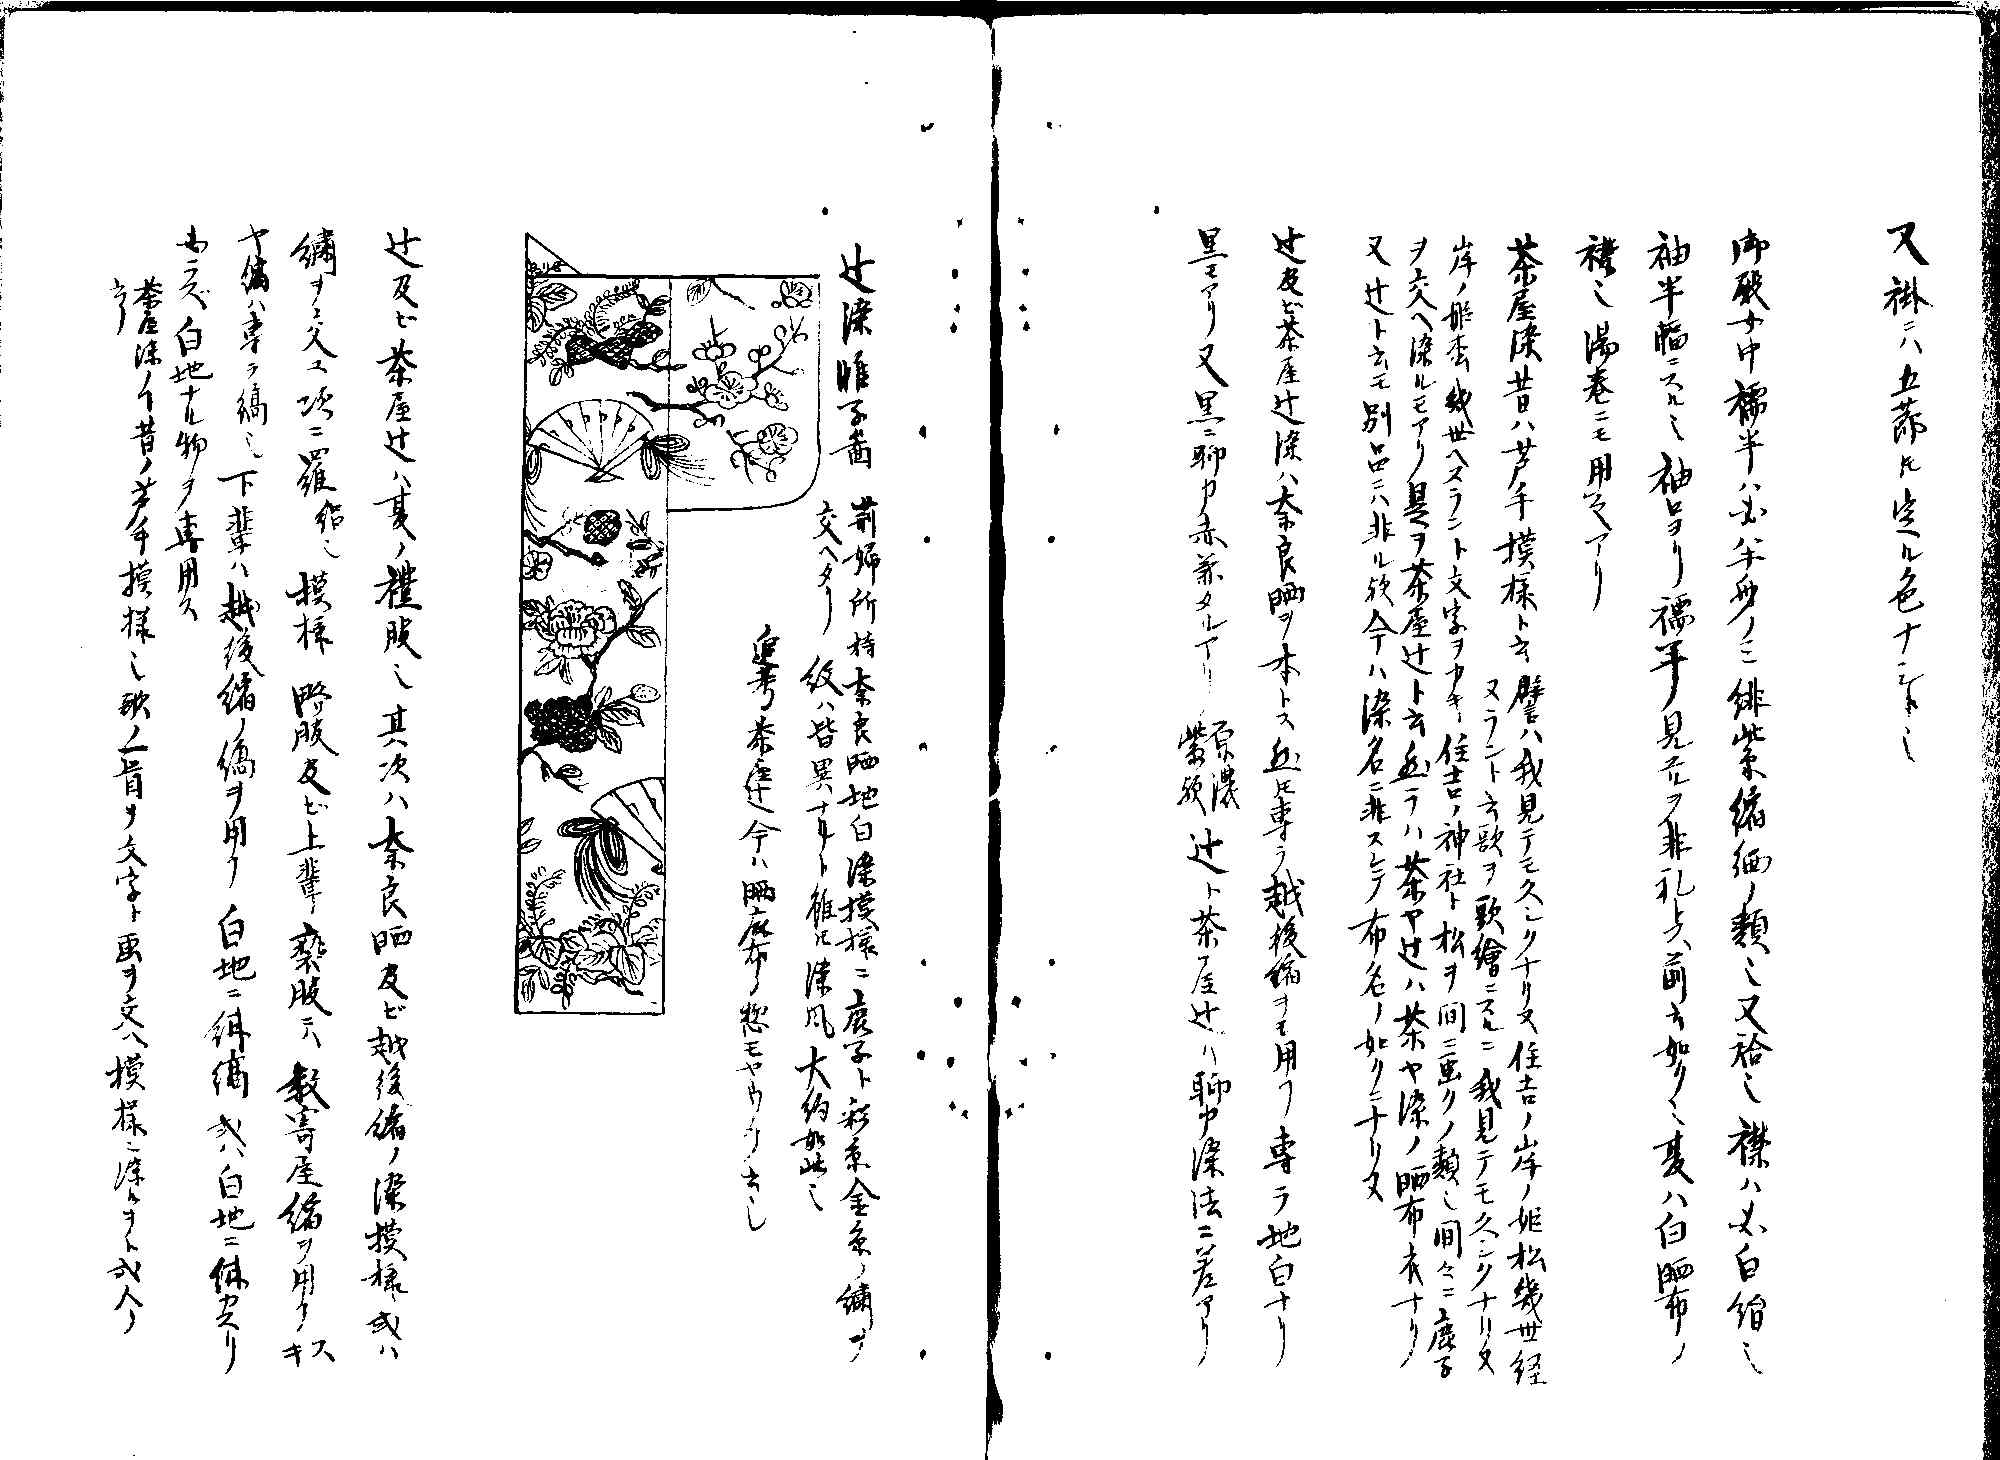 又掛ニハ五節比定ル色ナシト也
御殿女中襦半ハ必ズ半身ノミ緋紫縮緬ノ類也又袷也襟ハ必白縮也
袖半幅ニスル也袖口ヨリ襦半ノ見ユルヲ非礼トス前云如ク也夏ハ白晒布ノ
襟也湯巻ニモ用之アリ
茶屋染昔ハ芦手模様ト云譬ハ我見テモ久シクナリヌ住吉ノ岸ノ姫松幾世経
ヌラント云歌ヲ歌繪ニスルニ我見テモ久シクナリヌ
岸ノ姫松幾世ヘヌラント文字ヲカキ住吉ノ神社ト松ヲ間ニ画クノ類也間々ニ鹿子
ヲ交ヘ染ルモアリ是ヲ茶屋辻ト云此ラハ茶ヤ辻ハ茶ヤ染ノ晒布衣ナリ
又辻ト云モ別品ニハ非ル歟今ハ染名ニ非スシテ布名ノ如クニナリヌ
辻及ビ茶屋辻染ハ奈良晒ヲ本トス此比専ラ越後縮ヲモ用フ専ラ地白ナリ
黒モアリ又黒ニ聊カ赤兼タルアリ
原濃
紫歟
辻ト茶屋辻ハ聊カ染法ニ差アリ
辻染帷子図
前婦所持奈良晒地白染模様ニ鹿子ト彩糸金糸ノ繍ヲ
交ヘタリ紋ハ皆異ナルト雖比染風大約如此也
追考茶屋辻今ハ晒麻布ノ惣モヤウヲ云也
辻及ビ茶屋辻ハ夏ノ禮服也其次ハ奈良晒及ビ越後縮ノ染模様或ハ
繍ヲ交ユ次ニ羅絽也模様略服及ビ上輩褻服ニハ数寄屋縮ヲ用フスキ
ヤ縮ハ専ラ縞也下輩ハ越後縮ノ縞ヲ用フ白地ニ絣縞或ハ白地ニ絣カスリ
カラズ白地ナル物ヲ専用ス
茶屋染ノ昔ノ芦手模様也歌ノ一首ヲ文字ト画ヲ交ヘ模様ニ染ルヲト或人ノ
云リ